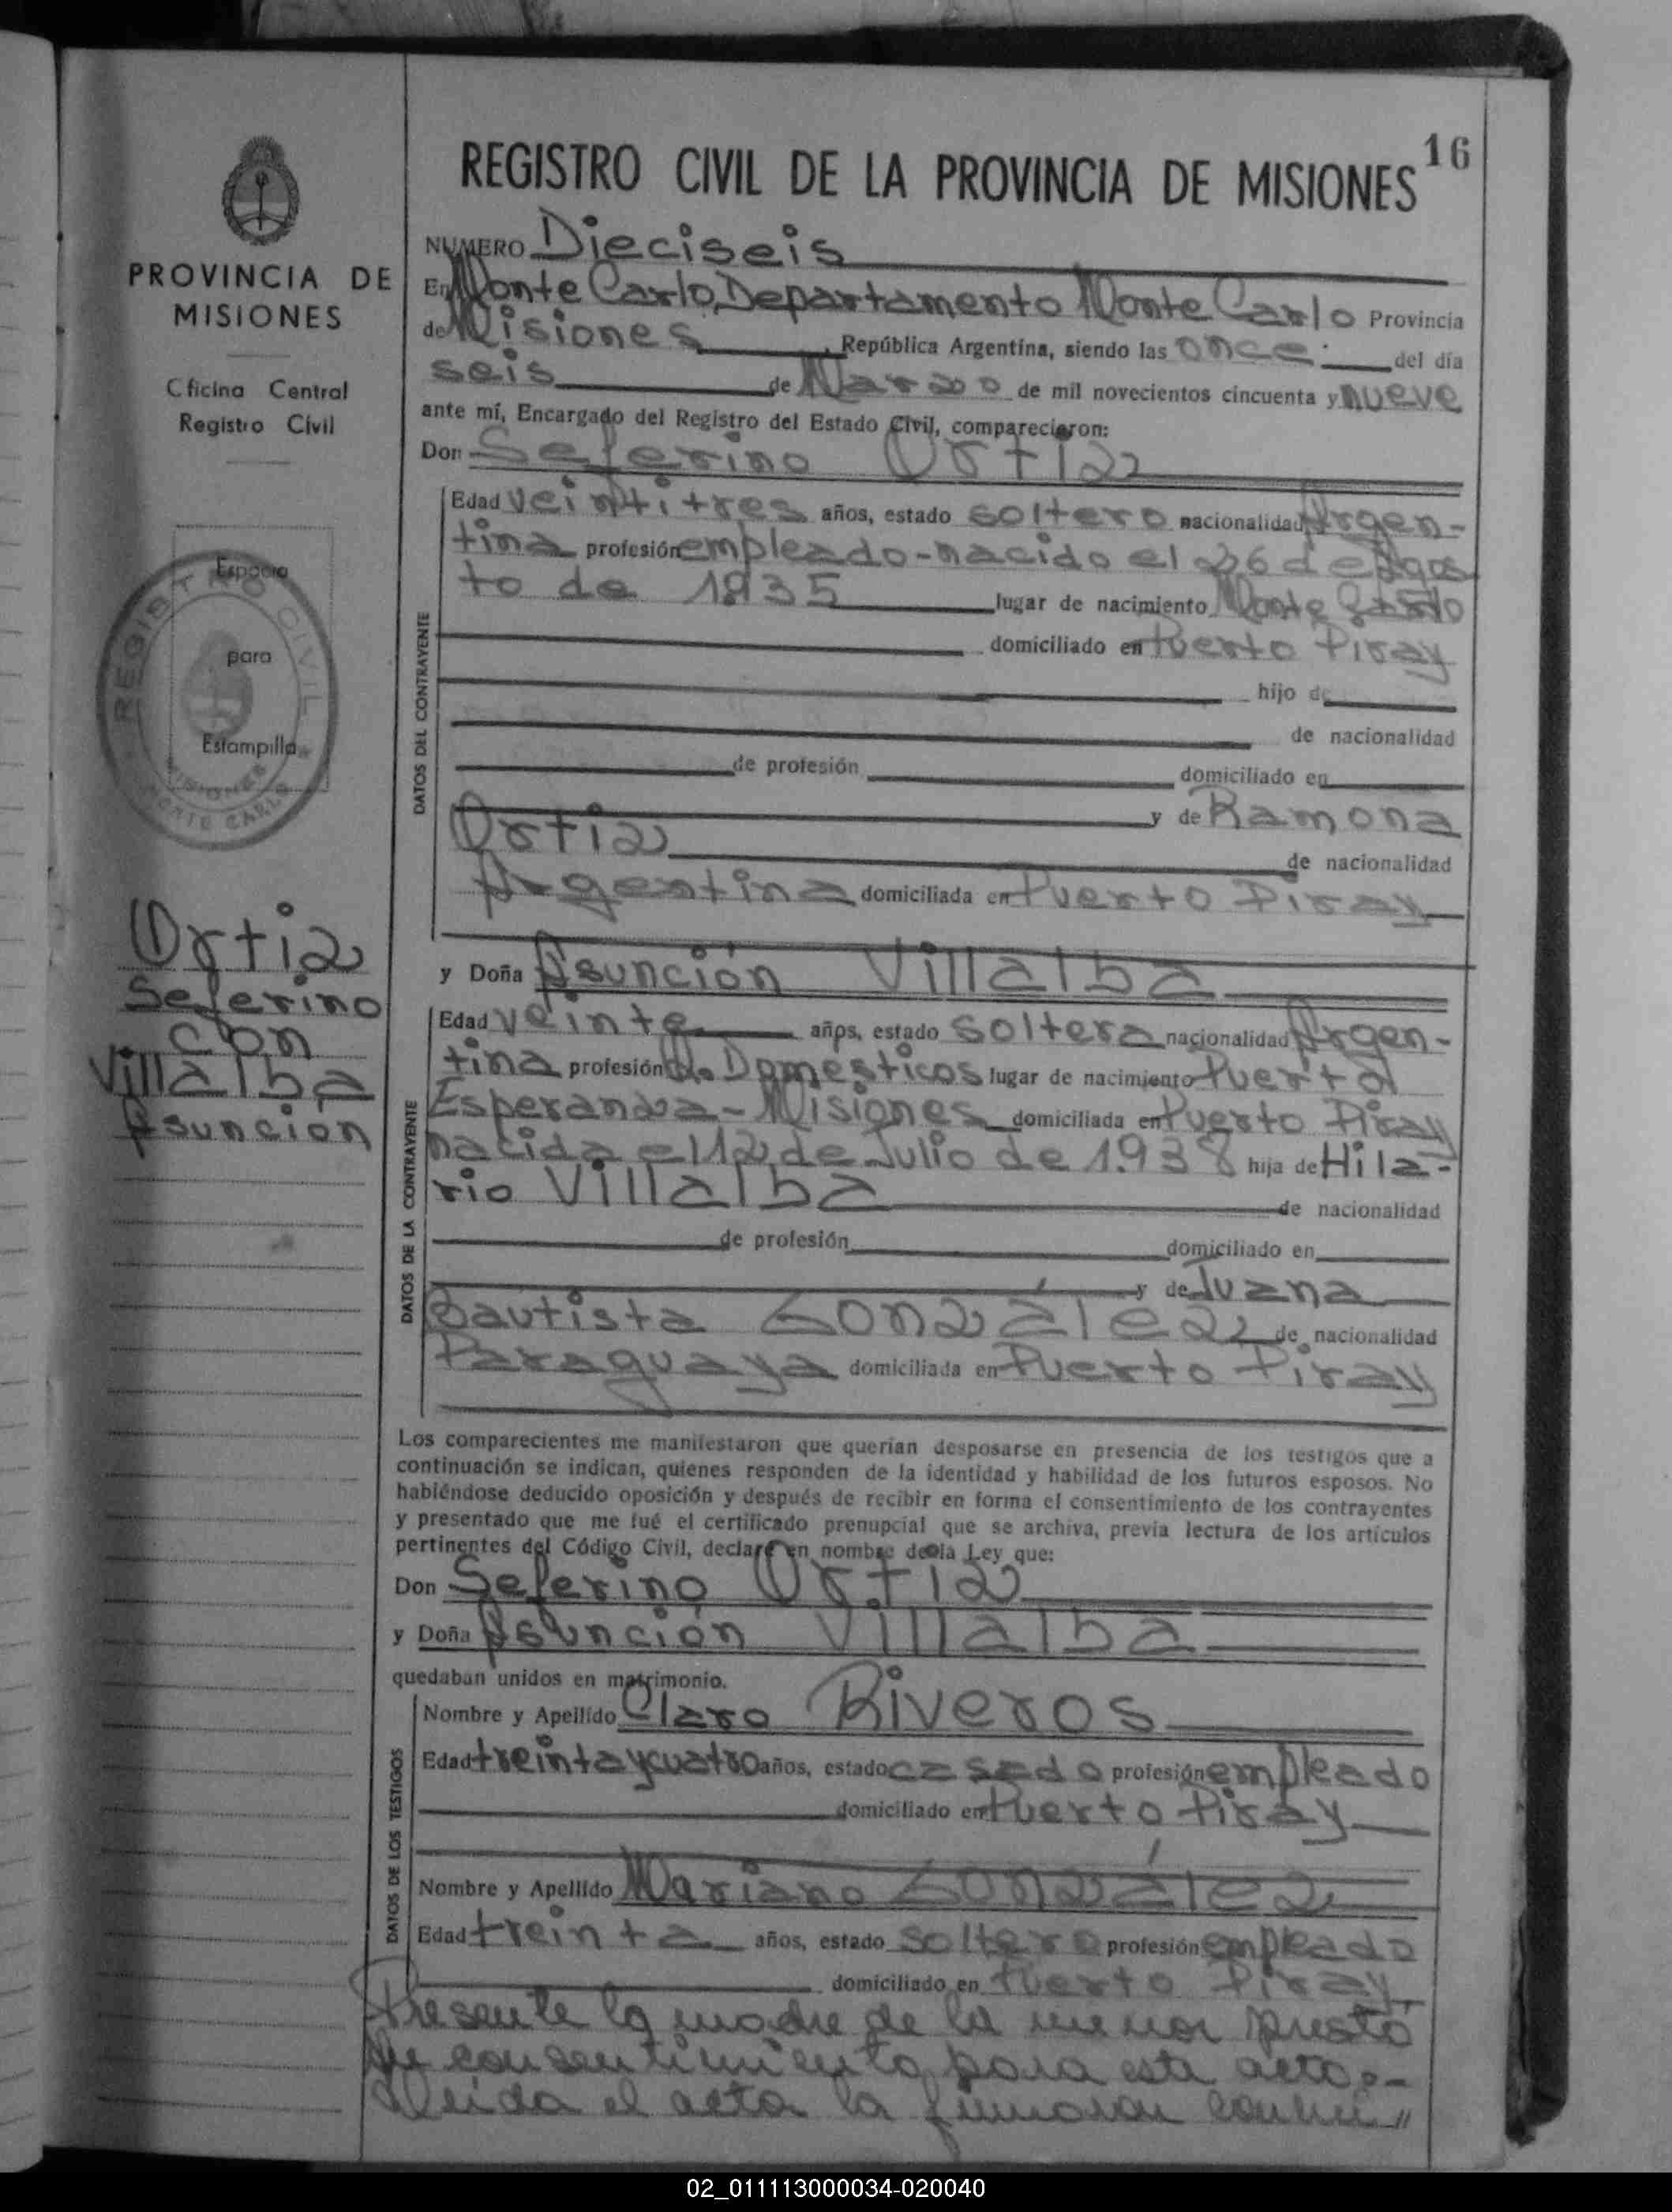 16
REGISTRO CIVIL DE LA PROVINCIA DE MISIONES
PROVINCIA DE
MISIONES
Oficina Central
Registro Civil
Espacio
para
Estampilla
REGISTRO CIVIL
MISIONES
MONTE CARLO
Ortiz
Seferino
con
Villalba
Asunción
NUMERO Dieciseis
En Monte Carlo, Departamento Monte Carlo Provincia
de Misiones, República Argentina, siendo las once del día
seis de Marzo de mil novecientos cincuenta y nueve
ante mí, Encargado del Registro del Estado Civil, comparecieron:
Don Seferino Ortiz
DATOS DEL CONTRAYENTE
Edad veintitres años, estado soltero nacionalidad Argen-
tina profesión empleado-nacido el 26 de Agos
to de 1935 lugar de nacimiento Monte Carlo
domiciliado en Puerto Piray
hijo de
de nacionalidad
de profesión domiciliado en
y de Ramona
Ortiz de nacionalidad
Argentina domiciliada en Puerto Piray
y Doña Asunción Villalba
DATOS DE LA CONTRAYENTE
Edad veinte años, estado soltera nacionalidad Argen-
tina profesión Q. Domésticos lugar de nacimiento Puerto
Esperanza-Misiones domiciliada en Puerto Piray
nacida el 12 de Julio de 1.938 hija de Hila-
rio Villalba de nacionalidad
de profesión domiciliado en
y de Juana
Bautista González de nacionalidad
Paraguaya domiciliada en Puerto Piray
Los comparecientes me manifestaron que querían desposarse en presencia de los testigos que a
continuación se indican, quienes responden de la identidad y habilidad de los futuros esposos. No
habiéndose deducido oposición y después de recibir en forma el consentimiento de los contrayentes
y presentado que me fué el certificado prenupcial que se archiva, previa lectura de los artículos
pertinentes del Código Civil, declaro en nombre de la Ley que:
Don Seferino Ortiz
y Doña Asunción Villalba
quedaban unidos en matrimonio.
DATOS DE LOS TESTIGOS
Nombre y Apellido Claro Riveros
Edad treinta y cuatro años, estado casado profesión empleado
domiciliado en Puerto Piray
Nombre y Apellido Mariano González
Edad treinta años, estado soltero profesión empleado
domiciliado en Puerto Piray
Presente la madre de la menor prestó
su consentimiento para este acto.-
Leida el acta la firmaron conmi"
02_011113000034-020040